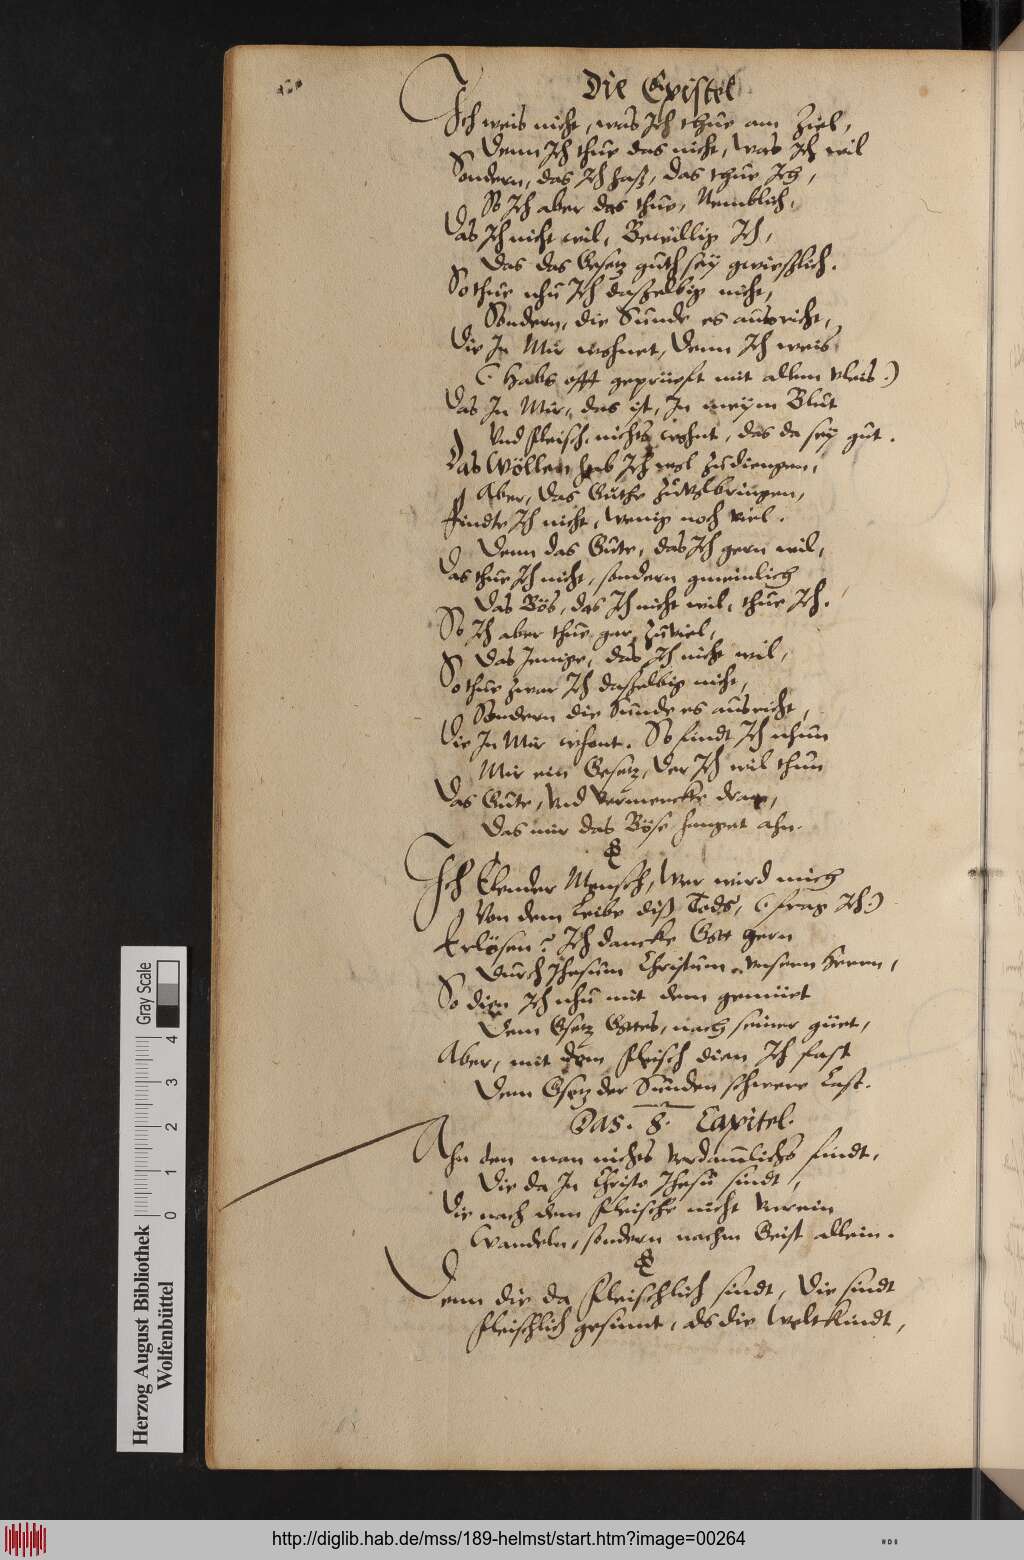 Die Epistel
Ich weis nicht, was Ich thue am Ziel,
Denn Ich thue das nicht, was Ich wil
Sondern, das Ich haß, das thue Ich,
So Ich aber das thue, Nemblich,
Das Ich nicht wil, Bewillig Ich,
Das das Gesetz guth sey gwießlich.
So thue nhu Ich daßelbig nicht,
Sondern, die Sunde es ausricht,
Die In Mir wohnet, Denn Ich weis
(: Habs offt geprüeft mit allem vleis :)
Das In Mir, das ist, In meym Blut
Vnd fleisch, nichts wohnt, das da sey gut.
Das Wöllen hab Ich wol zudiengen,
Aber, das Guthe zuvolbringen,
Findte Ich nicht, wenig noch viel.
Denn das Gute, das Ich gern wil,
Das thue Ich nicht, sondern gmeinlich
Das Bös, das Ich nicht wil, thue Ich.
So Ich aber thue gar zuviel,
Das Jenige, das Ich nicht wil,
So thue zwar Ich daßelbig nicht,
Sondern die Sunde es ausricht,
Die In Mir whont. So findt Ich nhun
Mir ein Gesetz, Der Ich wil thun
Das Gute, Vnd vermercke dran,
Das mir das Böse hanget ahn.
Ich Elender Mensch, Wer wird mich
Von dem Leibe diß Tods, (: frag Ich :)
Erlösen? Ich dancke Gott gern
Durch Jhesum Christum vnsern Herrn,
So dien Ich nhu mit dem gemüet
Dem Gsetz Gottes, nach seiner güet,
Aber, mit dem fleisch dien Ich fast
Dem Gsetz der Sünden schwere Last.
Das. 8. Capitel.
Ahn den man nichts verdamlichs findt,
Die da In Christo Jhesu sindt,
Die nach dem fleische nicht vnrein
Wandeln, sondern nachm Geist allein.
Denn die da fleischlich sindt, Die sindt
fleischlich gesinnt, als die Weltkindt,
Herzog August Bibliothek
Wolfenbüttel
Gray Scale
0 1 2 3 4
http://diglib.hab.de/mss/189-helmst/start.htm?image=00264